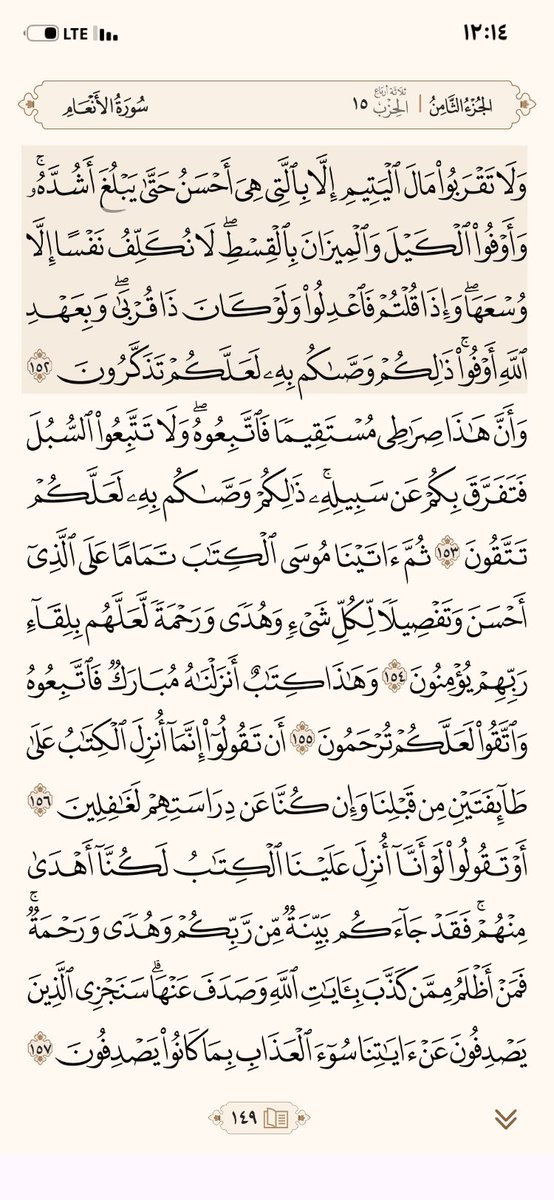 LTE ١٢:١٤
الجُزْءُ الثَّامِنُ | ثَلَاثَةُ أَرْبَاعِ الحِزْبِ ١٥ سُورَةُ الأَنْعَامِ
وَلَا تَقْرَبُوا۟ مَالَ ٱلْيَتِيمِ إِلَّا بِٱلَّتِى هِىَ أَحْسَنُ حَتَّىٰ يَبْلُغَ أَشُدَّهُۥۚ
وَأَوْفُوا۟ ٱلْكَيْلَ وَٱلْمِيزَانَ بِٱلْقِسْطِۖ لَا نُكَلِّفُ نَفْسًا إِلَّا
وُسْعَهَاۖ وَإِذَا قُلْتُمْ فَٱعْدِلُوا۟ وَلَوْ كَانَ ذَا قُرْبَىٰۖ وَبِعَهْدِ
ٱللَّهِ أَوْفُوا۟ۚ ذَٰلِكُمْ وَصَّىٰكُم بِهِۦ لَعَلَّكُمْ تَذَكَّرُونَ ١٥٢
وَأَنَّ هَٰذَا صِرَٰطِى مُسْتَقِيمًا فَٱتَّبِعُوهُۖ وَلَا تَتَّبِعُوا۟ ٱلسُّبُلَ
فَتَفَرَّقَ بِكُمْ عَن سَبِيلِهِۦۚ ذَٰلِكُمْ وَصَّىٰكُم بِهِۦ لَعَلَّكُمْ
تَتَّقُونَ ١٥٣ ثُمَّ ءَاتَيْنَا مُوسَى ٱلْكِتَٰبَ تَمَامًا عَلَى ٱلَّذِىٓ
أَحْسَنَ وَتَفْصِيلًا لِّكُلِّ شَىْءٍ وَهُدًى وَرَحْمَةً لَّعَلَّهُم بِلِقَآءِ
رَبِّهِمْ يُؤْمِنُونَ ١٥٤ وَهَٰذَا كِتَٰبٌ أَنزَلْنَٰهُ مُبَارَكٌ فَٱتَّبِعُوهُ
وَٱتَّقُوا۟ لَعَلَّكُمْ تُرْحَمُونَ ١٥٥ أَن تَقُولُوٓا۟ إِنَّمَآ أُنزِلَ ٱلْكِتَٰبُ عَلَىٰ
طَآئِفَتَيْنِ مِن قَبْلِنَا وَإِن كُنَّا عَن دِرَاسَتِهِمْ لَغَٰفِلِينَ ١٥٦
أَوْ تَقُولُوا۟ لَوْ أَنَّآ أُنزِلَ عَلَيْنَا ٱلْكِتَٰبُ لَكُنَّآ أَهْدَىٰ
مِنْهُمْۚ فَقَدْ جَآءَكُم بَيِّنَةٌ مِّن رَّبِّكُمْ وَهُدًى وَرَحْمَةٌۚ
فَمَنْ أَظْلَمُ مِمَّن كَذَّبَ بِـَٔايَٰتِ ٱللَّهِ وَصَدَفَ عَنْهَاۗ سَنَجْزِى ٱلَّذِينَ
يَصْدِفُونَ عَنْ ءَايَٰتِنَا سُوٓءَ ٱلْعَذَابِ بِمَا كَانُوا۟ يَصْدِفُونَ ١٥٧
١٤٩